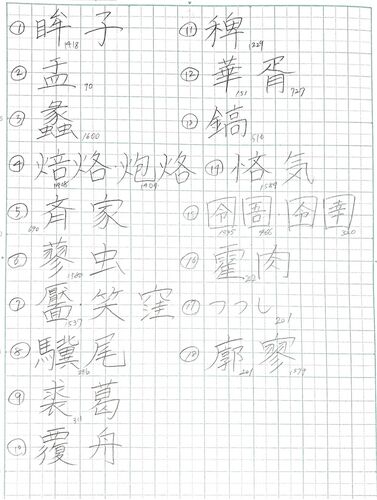 ① 眸子 1418
② 盂 70
③ 蠡 1600
④ 焙烙・炮烙 1408 1409
⑤ 斉家 690
⑥ 蓼虫 1580
⑦ 靨・笑窪 1537
⑧ 驥尾
⑨ 裘葛 311
⑩ 覆舟
⑪ 稗 1229
⑫ 華胥 151 727
⑬ 鎬 510
⑭ 悋気 1589
⑮ 囹圄 囹圉 1595 466 320
⑯ 霍肉 202
⑰ つつし 201
⑱ 廓寥 201 1579